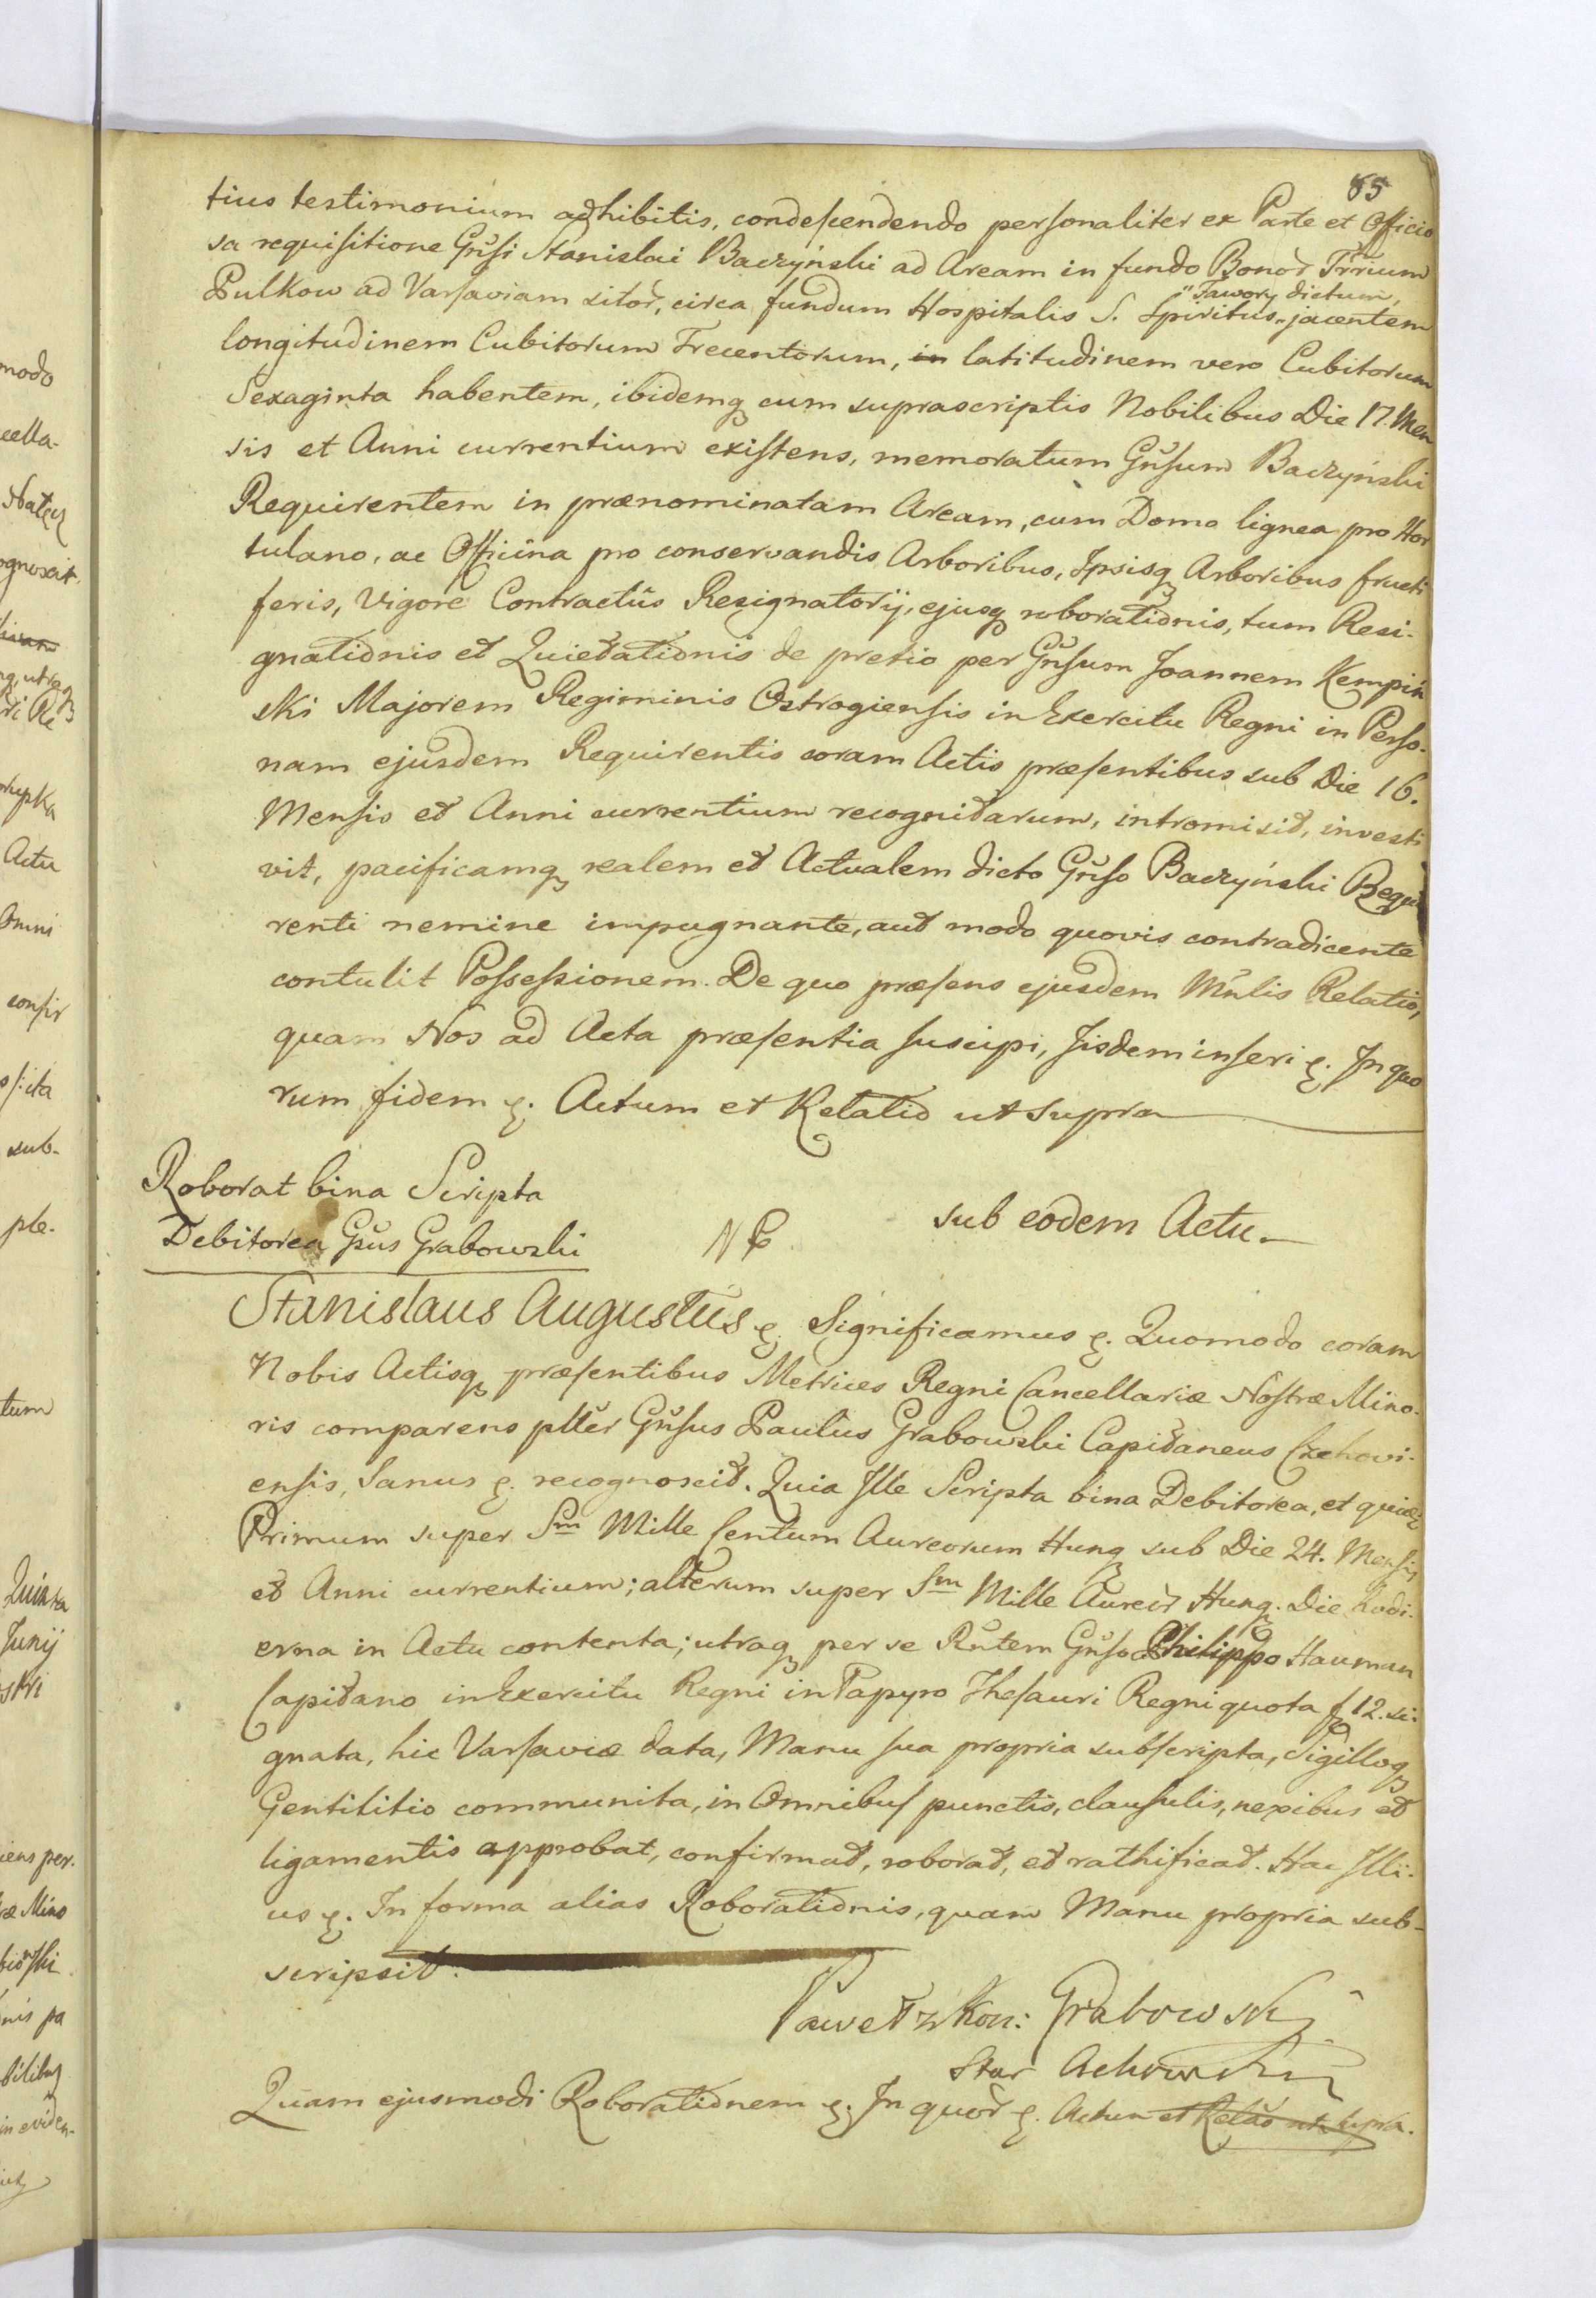 85
tius testimonium adhibitis, condescendendo personaliter ex Parte et Officio
sa requisitione Gnsi Stanislai Baczyński ad Aream in fundo Bonor Trrium
"Tawory dictum,
Pulkow ad Varsaviam sitor, circa fundum Hospitalis S. Spiritus "jacentem
longitudinem Cubitorum Trecentorum, in latitudinem vero Cubitorum
Sexaginta habentem, ibidemq cum suprascriptis Nobilibus Die 17. Men
sis et Anni currentium existens, memoratum Gnsum Baczyński
Requirentem in prænominatam Aream, cum Domo lignea pro Hor
tulano, ac Officina pro conservandis Arboribus, Ipsisq Arboribus fructi
feris, Vigore Contractûs Resignatorij, ejusq roborationis, tum Resi-
gnationis et Quietationis de pretio per Gnsum Joannem Kempiń
ski Majorem Regiminis Ostrogiensis in Exercitu Regni in Perso-
nam ejusdem Requirentis coram Actis præsentibus sub Die 16.
Mensis et Anni currentium recognitarum, intromisit, investi
vit, pacificamq realem et Actualem dicto Gnso Baczyński Requi
renti nemine impugnante, aut modo quovis contradicente
contulit Possessionem. De quo præsens ejusdem Mnlis Relatio,
quam Nos ad Acta præsentia suscipi, Iisdem inseri &. In quo
rum fidem &. Actum et Relatio ut supra
Roborat bina Scripta
Debitorea Gsus Grabowski
sub eodem Actu.
Stanislaus Augustus &. Significamus &. Quomodo coram
Nobis Actisq præsentibus Metrices Regni Cancellariæ Nostræ Mino-
ris comparens plter Gnsus Paulus Grabowski Capitaneus Czchovi-
ensis, Sanus &. recognoscit. Quia Ille Scripta bina Debitorea, et quidem
Primum super Sm Mille Centum Aureorum Hung sub Die 24. Mensis
et Anni currentium; alterum super Sm Mille Aureor Hung. Die hodi-
erna in Actu contenta; utraq per se Rntem Gnso Philippo Hauman
Capitano in Exercitu Regni in Papyro Thesauri Regni quota f 12. si-
gnata, hic Varsaviæ data, Manu sua propria subscripta, Sigilloq
Gentilitio communita, in Omnibus punctis, clausulis, nexibus et
ligamentis approbat, confirmat, roborat, et rathificat. Hac Illi-
us &. In forma alias Roborationis, quam Manu propria sub-
scripsit.
Paweł z Kon: Grabowski
Star
Quam ejusmodi Roborationem &. In quor &. Actum et Relao ut supra.